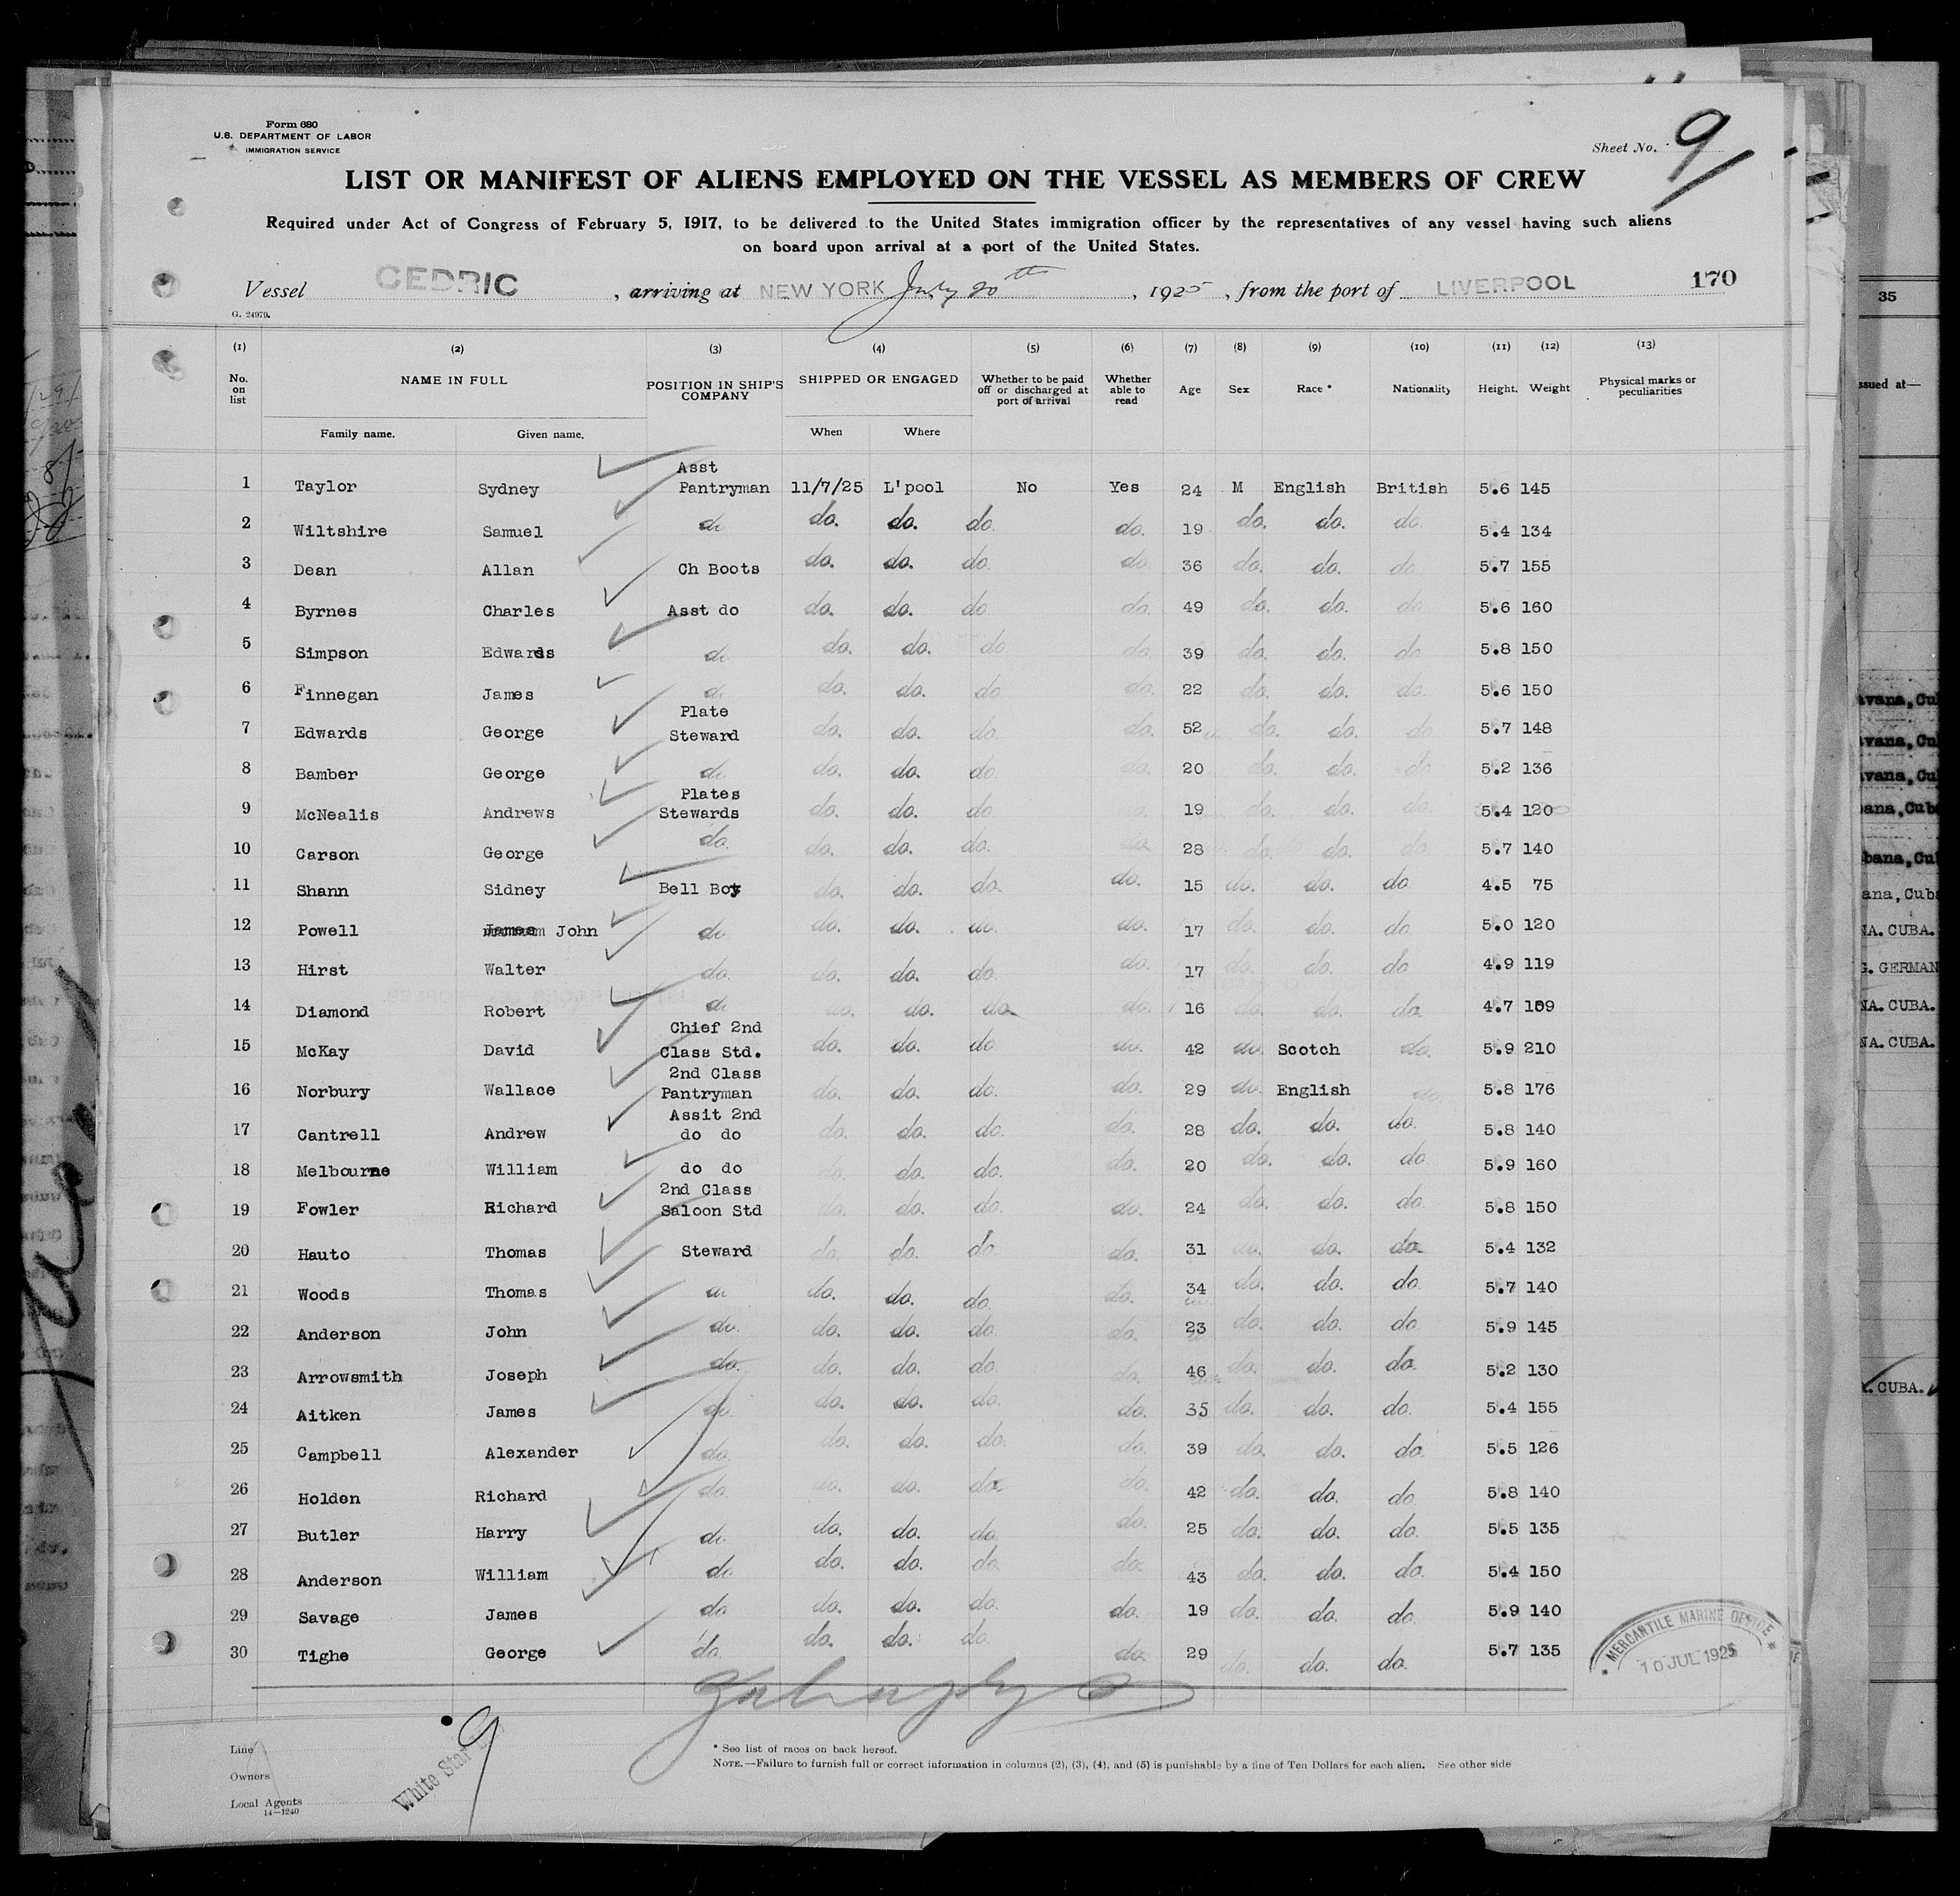 Form 680
U.S. DEPARTMENT OF LABOR
IMMIGRATION SERVICE
Sheet No. 9
LIST OR MANIFEST OF ALIENS EMPLOYED ON THE VESSEL AS MEMBERS OF CREW
Required under Act of Congress of February 5, 1917, to be delivered to the United States immigration officer by the representatives of any vessel having such aliens
on board upon arrival at a port of the United States.
Vessel CEDRIC, arriving at NEW YORK July 20th, 1925, from the port of LIVERPOOL 170
G. 24979.
(1) (2) (3) (4) (5) (6) (7) (8) (9) (10) (11) (12) (13)
No. on list NAME IN FULL POSITION IN SHIP'S COMPANY SHIPPED OR ENGAGED Whether to be paid off or discharged at port of arrival Whether able to read Age Sex Race * Nationality Height. Weight Physical marks or peculiarities
Family name. Given name. When Where
1 Taylor Sydney Asst Pantryman 11/7/25 L'pool No Yes 24 M English British 5.6 145
2 Wiltshire Samuel do do. do. do. do. 19 do. do. do. 5.4 134
3 Dean Allan Ch Boots do. do. do. do. 36 do. do. do 5.7 155
4 Byrnes Charles Asst do do. do. do do. 49 do. do. do 5.6 160
5 Simpson Edwards do do. do. do. do. 39 do. do. do. 5.8 150
6 Finnegan James do do. do. do. do. 22 do. do. do. 5.6 150
7 Edwards George Plate Steward do. do. do. do. 52 do. do. do. 5.7 148
8 Bamber George do do. do. do. do. 20 do. do. do. 5.2 136
9 McNealis Andrews Plates Stewards do. do. do 19 do. do. do. 5.4 120
10 Carson George do. do. do. do. do. 28 do. do. do. 5.7 140
11 Shann Sidney Bell Boy do. do. do. do. 15 do. do. do 4.5 75
12 Powell James John do do. do. do. do. 17 do. do. do 5.0 120
13 Hirst Walter do. do. do. do. do. 17 do. do. do 4.9 119
14 Diamond Robert do do. do. do. do. 16 do. do. do. 4.7 109
15 McKay David Chief 2nd Class Std. do. do. do. do. 42 do. Scotch do. 5.9 210
16 Norbury Wallace 2nd Class Pantryman do. do. do. do. 29 do. English do 5.8 176
17 Cantrell Andrew Assit 2nd do do do. do. do. do. 28 do. do. do. 5.8 140
18 Melbourne William do do do. do. do. do. 20 do. do. do. 5.9 160
19 Fowler Richard 2nd Class Saloon Std do. do. do. do. 24 do. do. do. 5.8 150
20 Hauto Thomas Steward do. do. do do. 31 do. do. do. 5.4 132
21 Woods Thomas do do. do. do. do. 34 do. do. do 5.7 140
22 Anderson John do. do. do. do. do. 23 do. do. do 5.9 145
23 Arrowsmith Joseph do. do. do. do. do. 46 do. do. do. 5.2 130
24 Aitken James do. do. do. do. do. 35 do. do. do. 5.4 155
25 Campbell Alexander do. do. do. do. do. 39 do. do. do. 5.5 126
26 Holden Richard do. do. do. do. do. 42 do. do. do. 5.8 140
27 Butler Harry do. do. do. do. do. 25 do. do. do. 5.5 135
28 Anderson William do. do. do. do. do. 43 do. do. do. 5.4 150
29 Savage James do do. do. do. do. 19 do. do. do. 5.9 140
30 Tighe George do. do. do. do do. 29 do. do. do. 5.7 135
MERCANTILE MARINE OFFICE
10 JUL 1925
Line
Owners
Local Agents
14—1240
White Star
9
* See list of races on back hereof.
NOTE.—Failure to furnish full or correct information in columns (2), (3), (4), and (5) is punishable by a fine of Ten Dollars for each alien. See other side
35
ssued at—
NA. CUBA.
G. GERMAN
NA. CUBA.
NA. CUBA.
. CUBA.